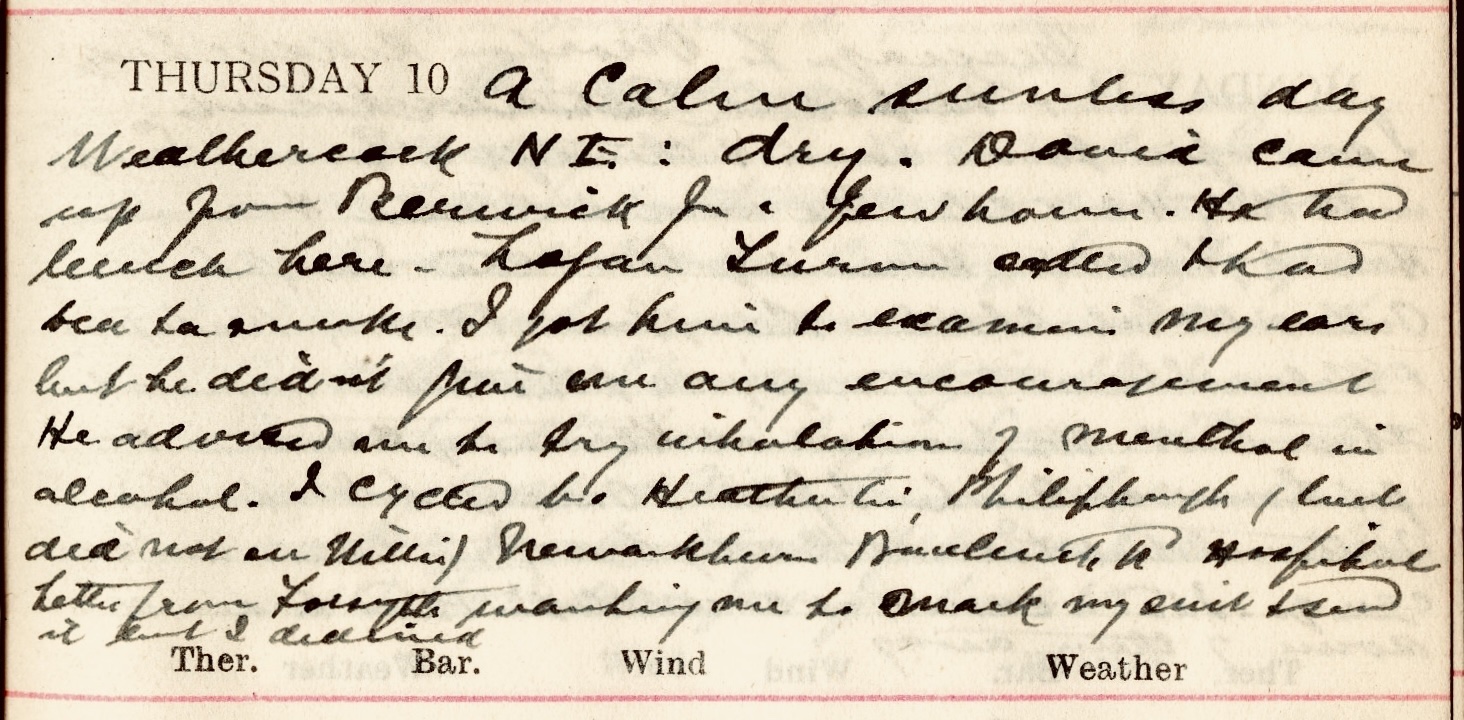 THURSDAY 10 A Calm sunless day
Weathercock N E. : dry. David came
up from Berwick for a few hours. He had
lunch here - Logan Turner called & had
tea & a smoke. I got him to examine my ears
but he didn't give me any encouragement
He advised me to try inhalation of menthol in
alcohol. I cycled to Heatherlie, Philiphaugh (but
did not see Willie) Newarkburn Hospital
Letter from Forsyth wanting me to mark my suit & send
it but I declined
Ther. Bar. Wind Weather